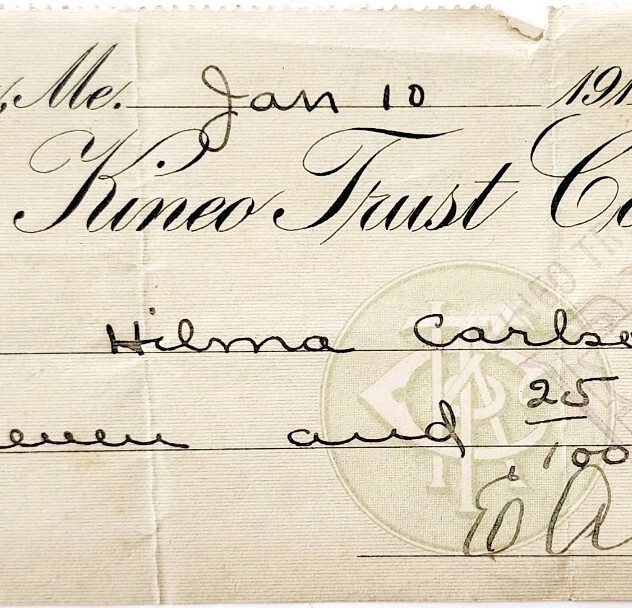 Me. Jan 10 191
Kineo Trust Co
Hilma Carls
and 25
100
E A